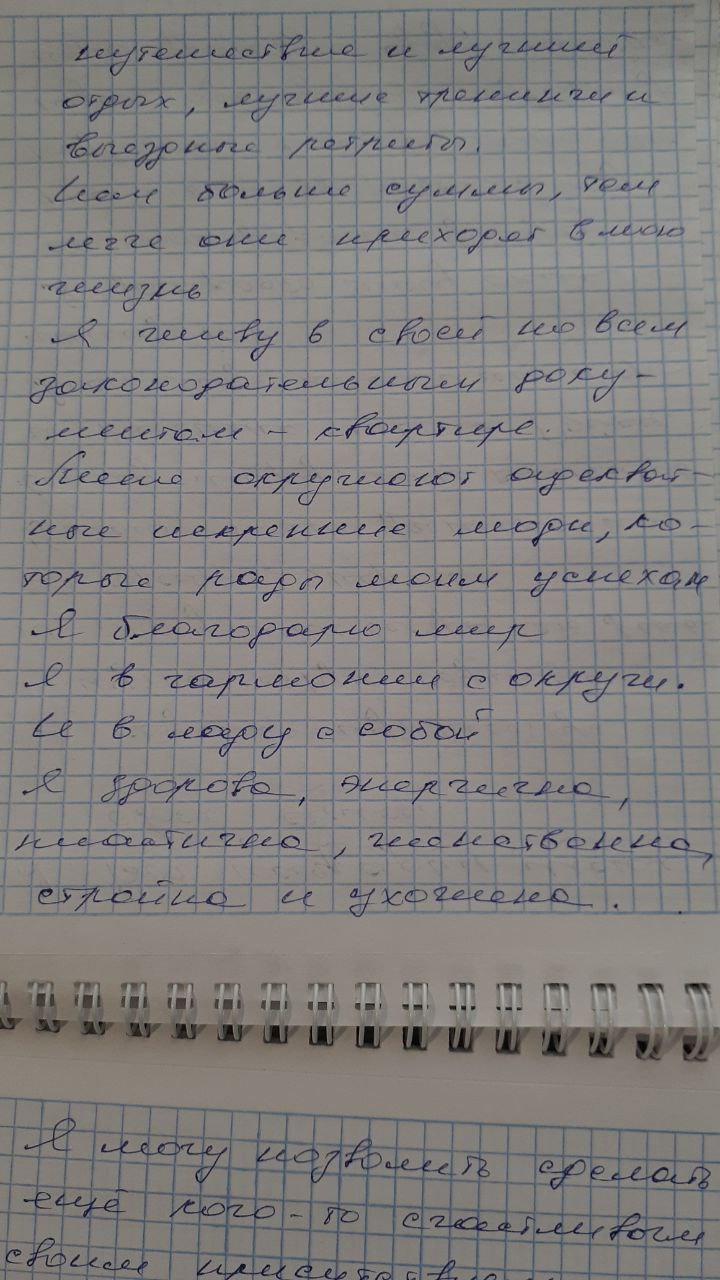 путешествие и лучший
отдых, лучшие тренинги и
выездные ретриты.
Чем больше суммы, тем
легче они приходят в мою
жизнь
Я живу в своей по всем
законодательным доку-
ментам - квартире.
Меня окружают адекват-
ные искренние люди, ко-
торые рады моим успехам
Я благодарю мир
Я в гармонии с окруж.
И в ладу с собой
Я здорова, энергична,
пластична, женственна,
стройна и ухожена.
Я могу позволить сделать
ещё кого-то счастливым
своим присутствием